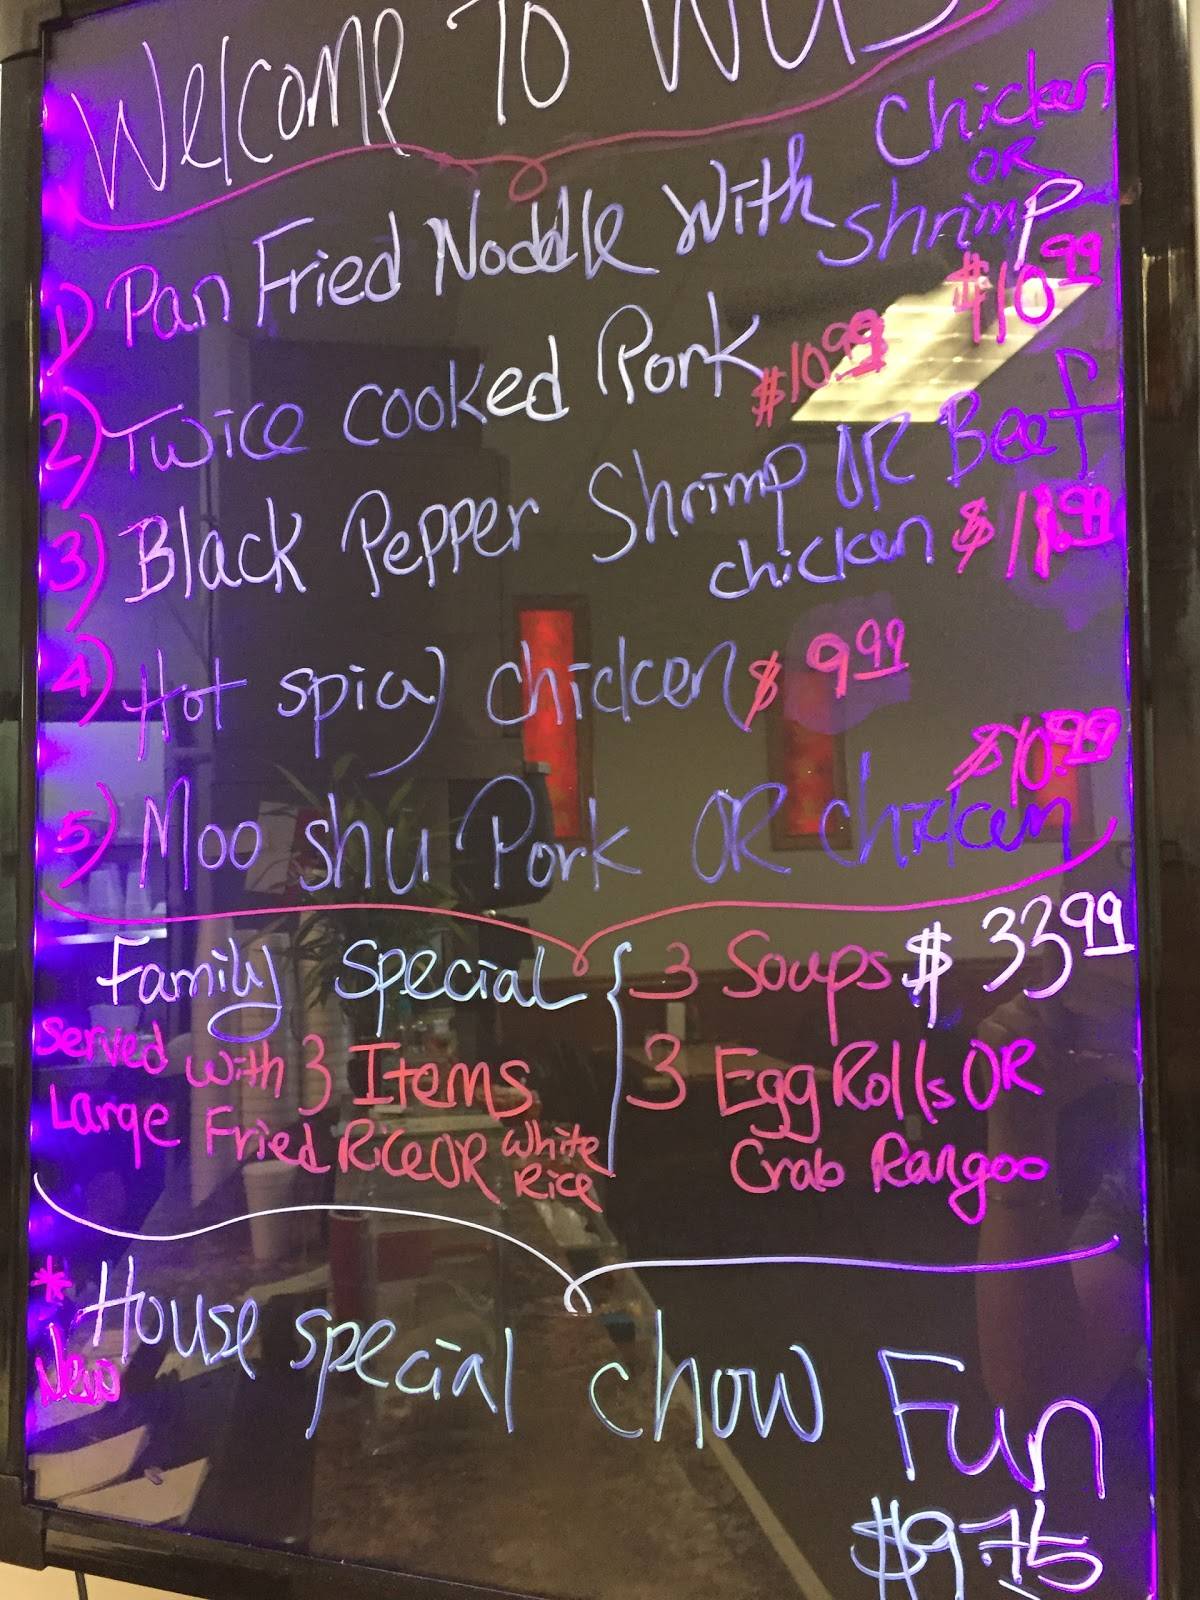 Welcome To WU'S
1) Pan Fried Noddle with Chicken OR Shrimp $10.99
2) Twice cooked Pork $10.99
3) Black Pepper Shrimp OR Beef
chicken $11.99
4) Hot spicy chicken $9.99
5) Moo shu Pork OR chicken $10.99
Family special
Served with 3 Items
Large Fried Rice OR White Rice
3 Soups $33.99
3 Egg Rolls OR
Crab Rangoo
* New House special chow Fun
$9.75